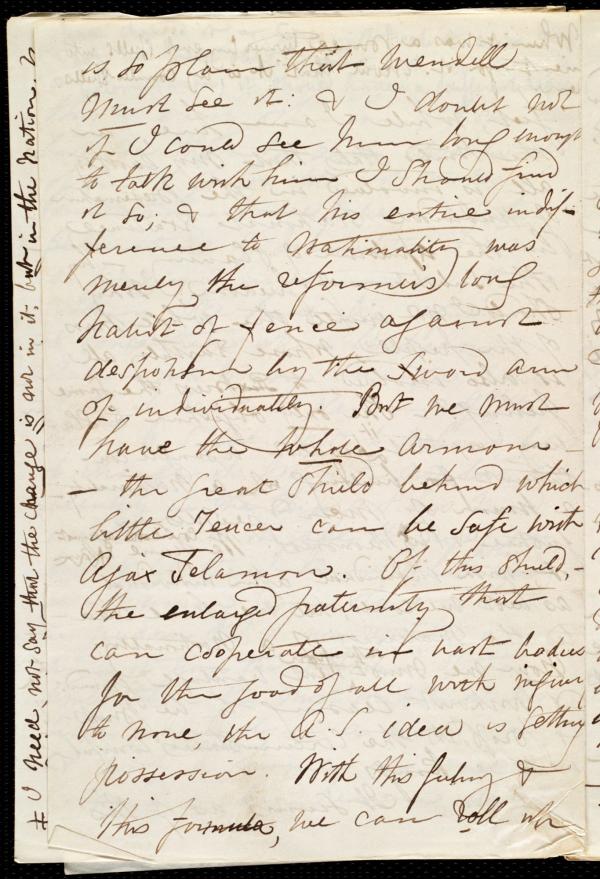 is so plain that Wendell
must see it: & I doubt not
if I could see him long enough
to talk with him I should find
it so; & that his entire indif-
ference to nationality was
merely the reformer's long
habit of fence against
despotism by the sword arm
of individuality. But we must
have the whole armour
- the great shield behind which
little Teucer can be safe with
Ajax Telamon. Of this shield,-
the enlarged fraternity that
can cooperate in vast bodies
for the good of all with injury
to none, the A.S. idea is getting
possession. With this feeling &
this formula, we can roll
# I need not say that the change is not in it; but in the Nation.